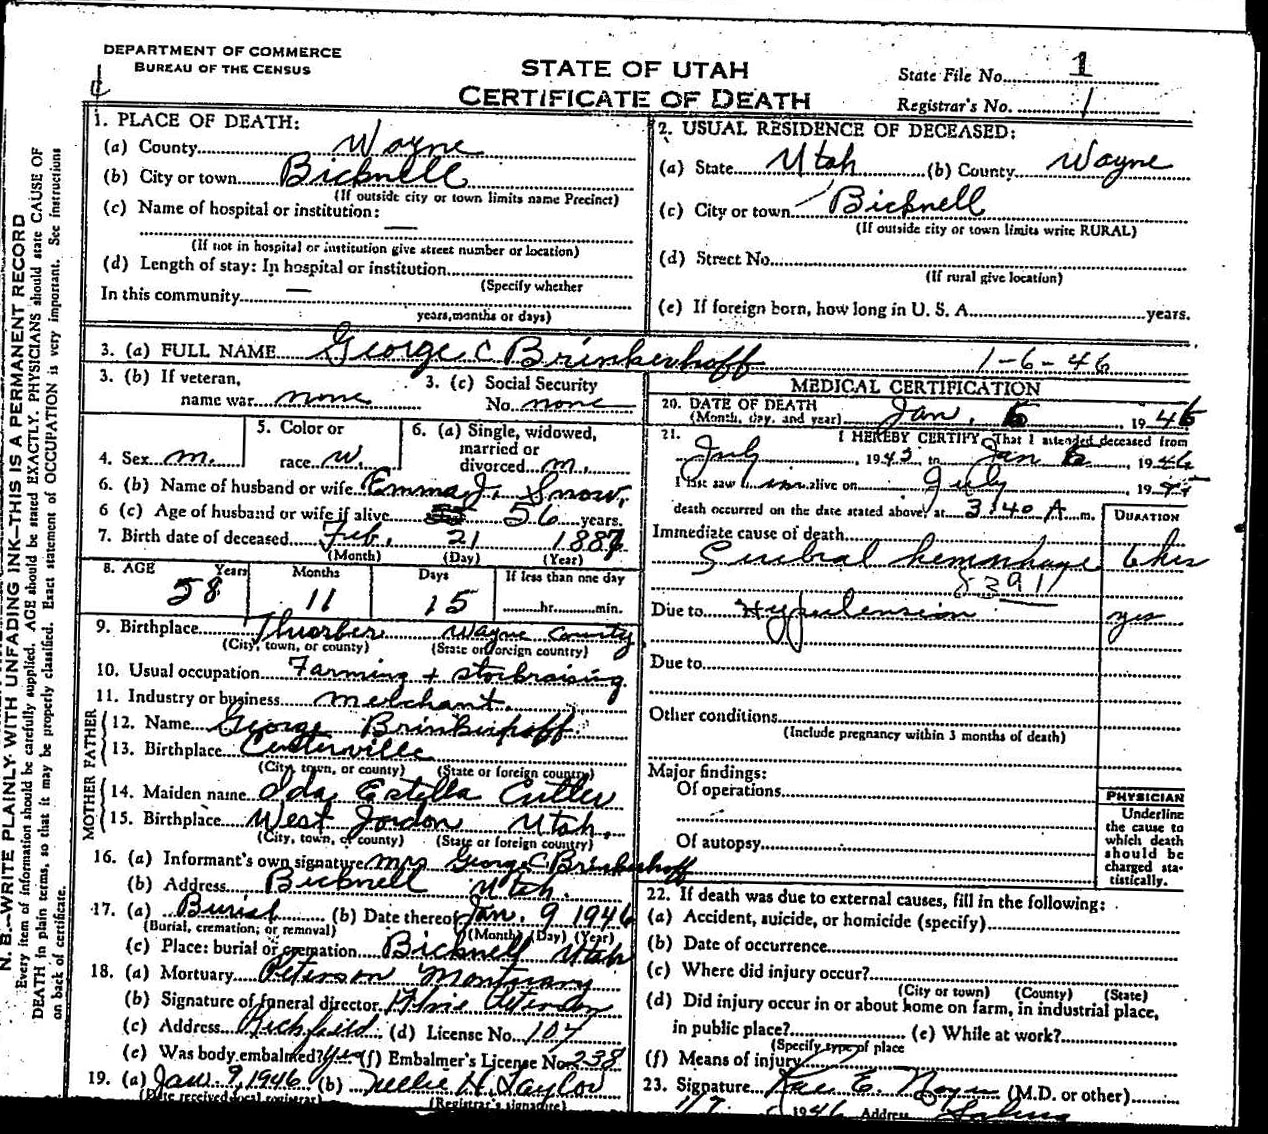 DEPARTMENT OF COMMERCE
BUREAU OF THE CENSUS
STATE OF UTAH
CERTIFICATE OF DEATH
State File No. 1
Registrar's No. 1
N. B.—WRITE PLAINLY WITH UNFADING INK—THIS IS A PERMANENT RECORD
Every item of information should be carefully supplied. AGE should be stated EXACTLY. PHYSICIANS should state CAUSE OF
DEATH in plain terms, so that it may be properly classified. Exact statement of OCCUPATION is very important. See instructions
on back of certificate.
1. PLACE OF DEATH:
(a) County Wayne
(b) City or town Bicknell
(If outside city or town limits name Precinct)
(c) Name of hospital or institution: —
(If not in hospital or institution give street number or location)
(d) Length of stay: In hospital or institution
(Specify whether
In this community —
years, months or days)
2. USUAL RESIDENCE OF DECEASED:
(a) State Utah (b) County Wayne
(c) City or town Bicknell
(If outside city or town limits write RURAL)
(d) Street No.
(If rural give location)
(e) If foreign born, how long in U. S. A. years.
3. (a) FULL NAME George C Brinkerhoff 1-6-46
3. (b) If veteran,
name war none
3. (c) Social Security
No. none
4. Sex m.
5. Color or
race w.
6. (a) Single, widowed,
married or
divorced m.
6. (b) Name of husband or wife Emma J. Snow.
6 (c) Age of husband or wife if alive 56 years.
7. Birth date of deceased Feb. 21 1887
(Month) (Day) (Year)
8. AGE Years Months Days If less than one day
58 11 15 hr. min.
9. Birthplace Thurber Wayne County
(City, town, or county) (State or foreign country)
10. Usual occupation Farming + stockraising
11. Industry or business merchant.
FATHER
12. Name George Brinkerhoff
13. Birthplace Centerville
(City, town, or county) (State or foreign country)
MOTHER
14. Maiden name Ida Estella Cutler
15. Birthplace West Jordon Utah.
(City, town, or county) (State or foreign country)
16. (a) Informant's own signature Mrs George C Brinkerhoff
(b) Address Bicknell Utah.
17. (a) Burial (b) Date thereof Jan. 9 1946
(Burial, cremation, or removal) (Month) (Day) (Year)
(c) Place: burial or cremation Bicknell Utah
18. (a) Mortuary Peterson Mortuary
(b) Signature of funeral director Peterson
(c) Address Richfield (d) License No. 107
(e) Was body embalmed? Yes (f) Embalmer's License No. 238
19. (a) Jan. 9, 1946 (b) Nellie H. Taylor
(Date received local registrar) (Registrar's signature)
MEDICAL CERTIFICATION
20. DATE OF DEATH
(Month, day, and year) Jan. 6 1946
21. I HEREBY CERTIFY, That I attended deceased from
July, 1945 to Jan 6, 1946
I last saw him alive on July 1945
death occurred on the date stated above, at 3:40 A m.
DURATION
Immediate cause of death
Cerebral hemorrhage 6 hrs
8391
Due to Hypertension yes
Due to
Other conditions
(Include pregnancy within 3 months of death)
Major findings:
Of operations
Of autopsy
PHYSICIAN
Underline
the cause to
which death
should be
charged sta-
tistically.
22. If death was due to external causes, fill in the following:
(a) Accident, suicide, or homicide (specify)
(b) Date of occurrence
(c) Where did injury occur?
(City or town) (County) (State)
(d) Did injury occur in or about home on farm, in industrial place,
in public place? (e) While at work?
(Specify type of place
(f) Means of injury
23. Signature Rae E. Noyes (M.D. or other)
1/7 1946 Address Salina